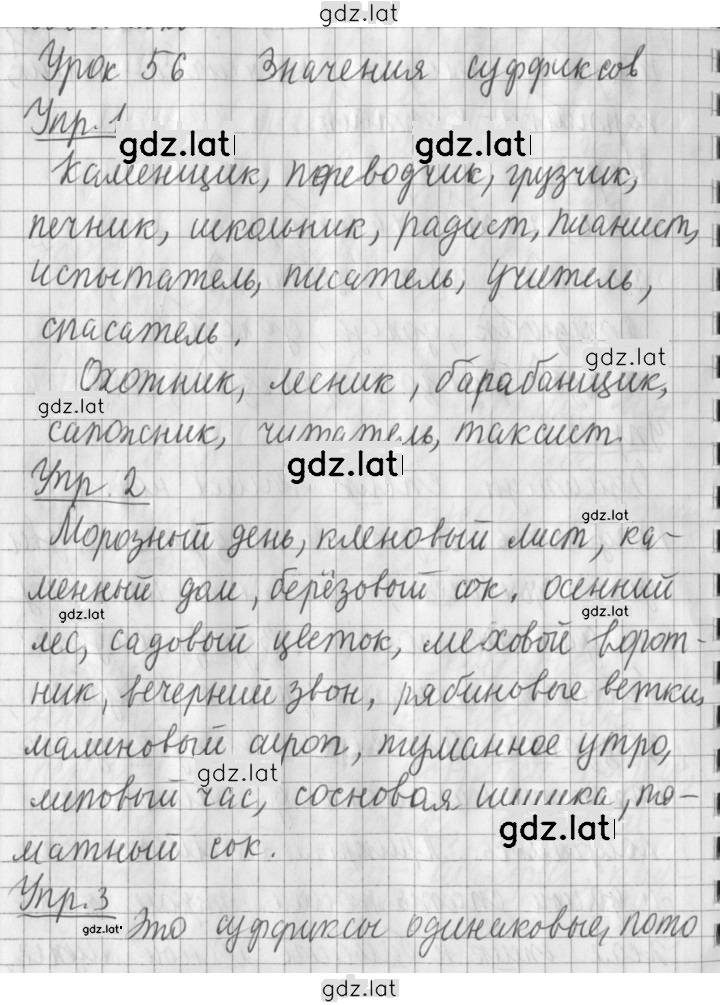 gdz.lat
Урок 56 Значения суффиксов
Упр. 1
gdz.lat gdz.lat
Каменщик, переводчик, грузчик,
печник, школьник, радист, пианист,
испытатель, писатель, учитель,
спасатель.
gdz.lat
Охотник, лесник, барабанщик,
gdz.lat
сапожник, читатель, таксист.
gdz.lat
Упр. 2
gdz.lat
Морозный день, кленовый лист, ка-
менный дом, берёзовый сок, осенний
gdz.lat gdz.lat
лес, садовый цветок, меховой ворот-
ник, вечерний звон, рябиновые ветки,
малиновый сироп, туманное утро,
gdz.lat
липовый час, сосновая шишка, то-
gdz.lat
матный сок.
Упр. 3
gdz.lat Это суффиксы одинаковые, пото
gdz.lat